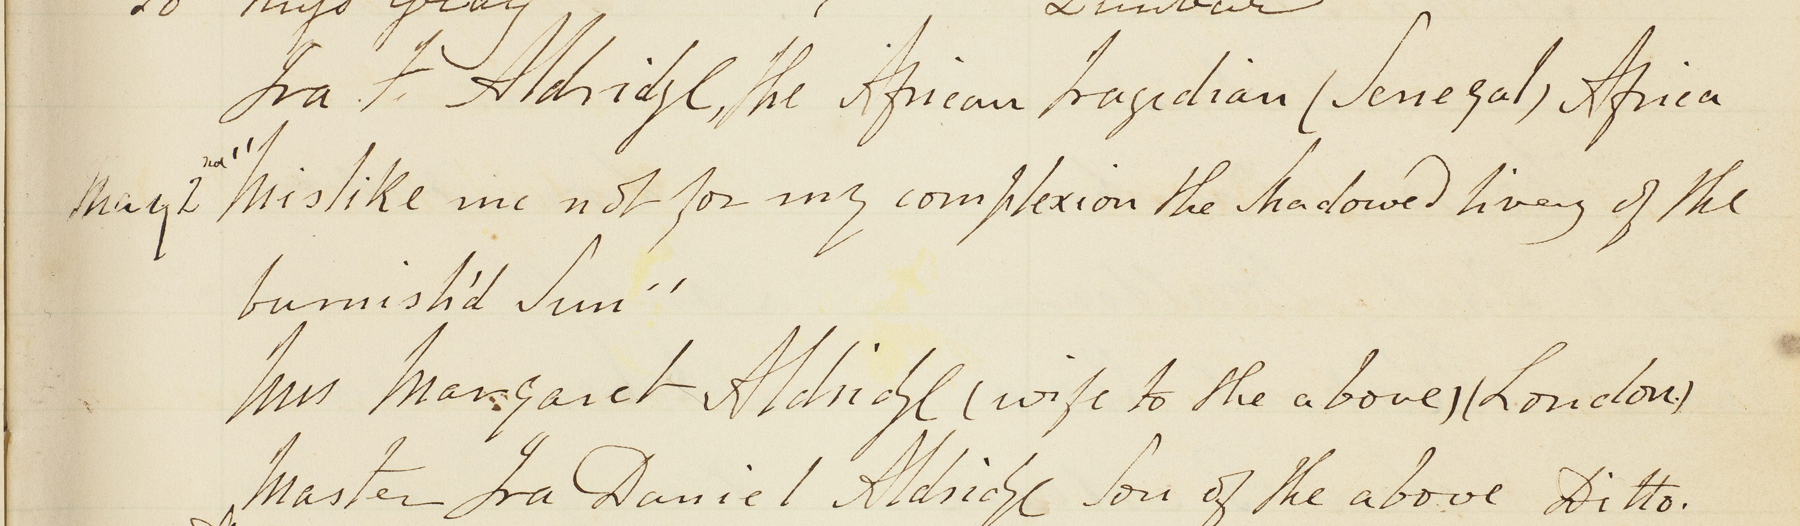 20 Miss Gray " Dunbar
Ira F. Aldridge, the African Tragedian (Senegal) Africa
May 2nd "Mislike me not for my complexion the Shadowed livery of the
burnish'd Sun"
Mrs Margaret Aldridge (wife to the above) (London)
Master Ira Daniel Aldridge Son of the above Ditto.